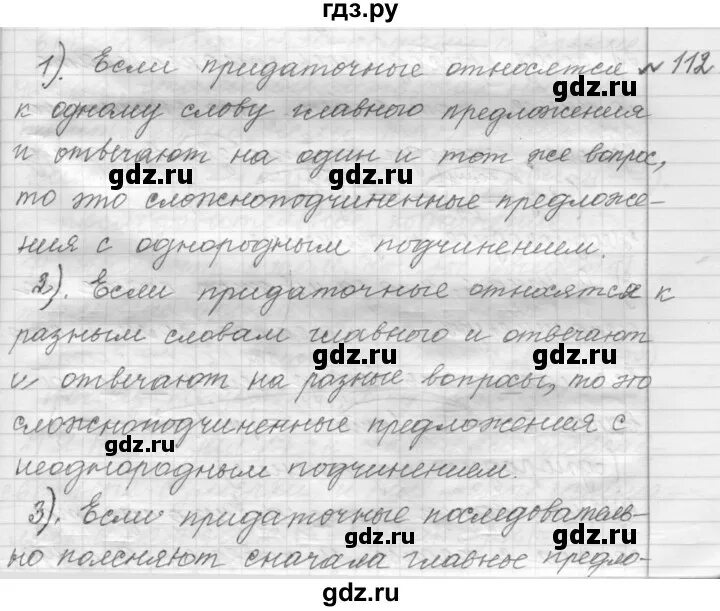 гдз.ру
1). Если придаточные относятся № 112
к одному слову главного предложения
и отвечают на один и тот же вопрос,
то это сложноподчиненные предложе-
ния с однородным подчинением.
2). Если придаточные относятся к
разным словам главного и отвечают
и отвечают на разные вопросы, то это
сложноподчиненные предложения с
неоднородным подчинением.
3). Если придаточные последователь-
но поясняют сначала главное предло-
gdz.ru
gdz.ru
gdz.ru
gdz.ru
gdz.ru
gdz.ru
gdz.ru
gdz.ru
gdz.ru
gdz.ru
gdz.ru